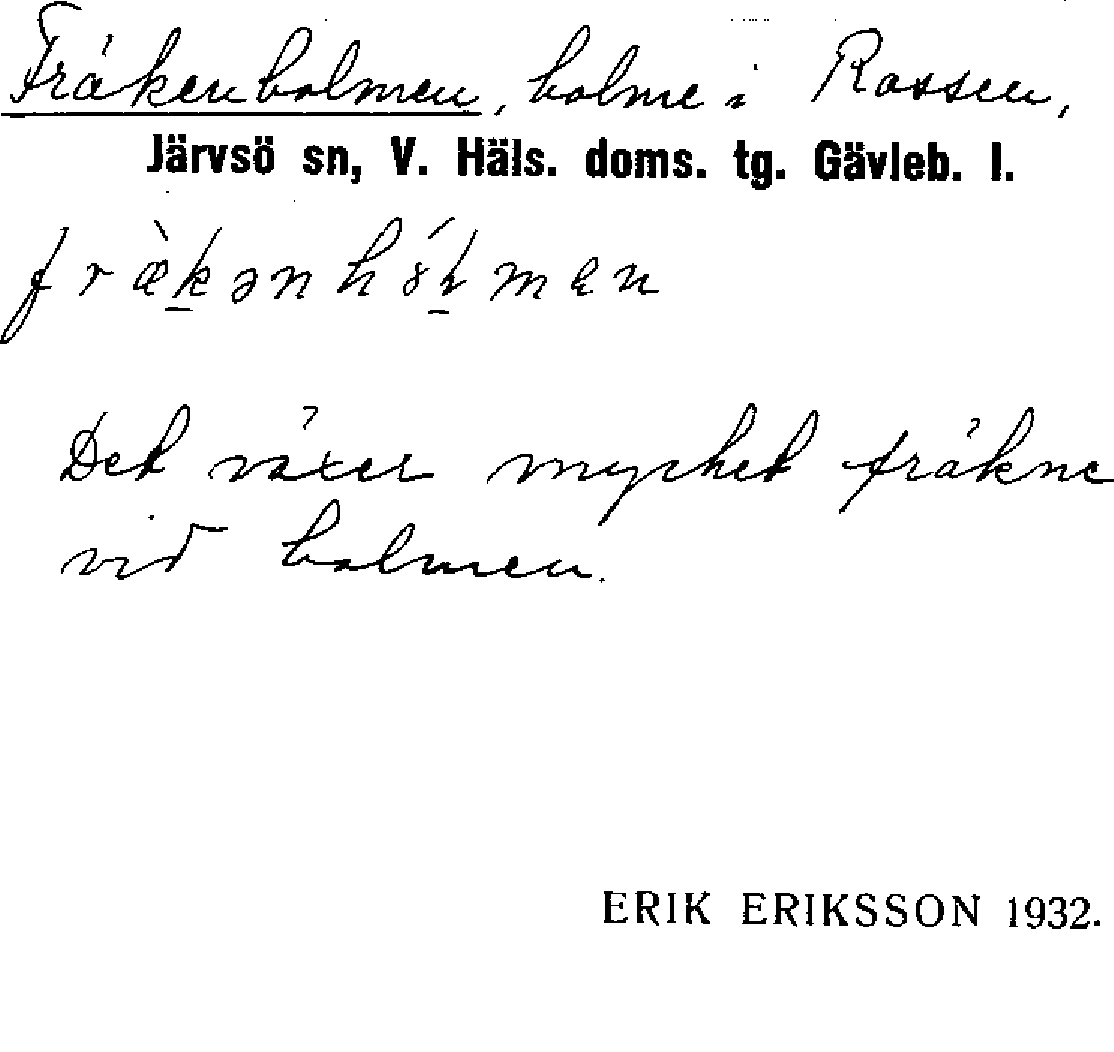 Fräkenholmen, holme i Rossen,
Järvsö sn, V. Häls. doms. tg. Gävleb. l.
Det växer mycket fräkne
vid holmen.
ERIK ERIKSSON 1932.